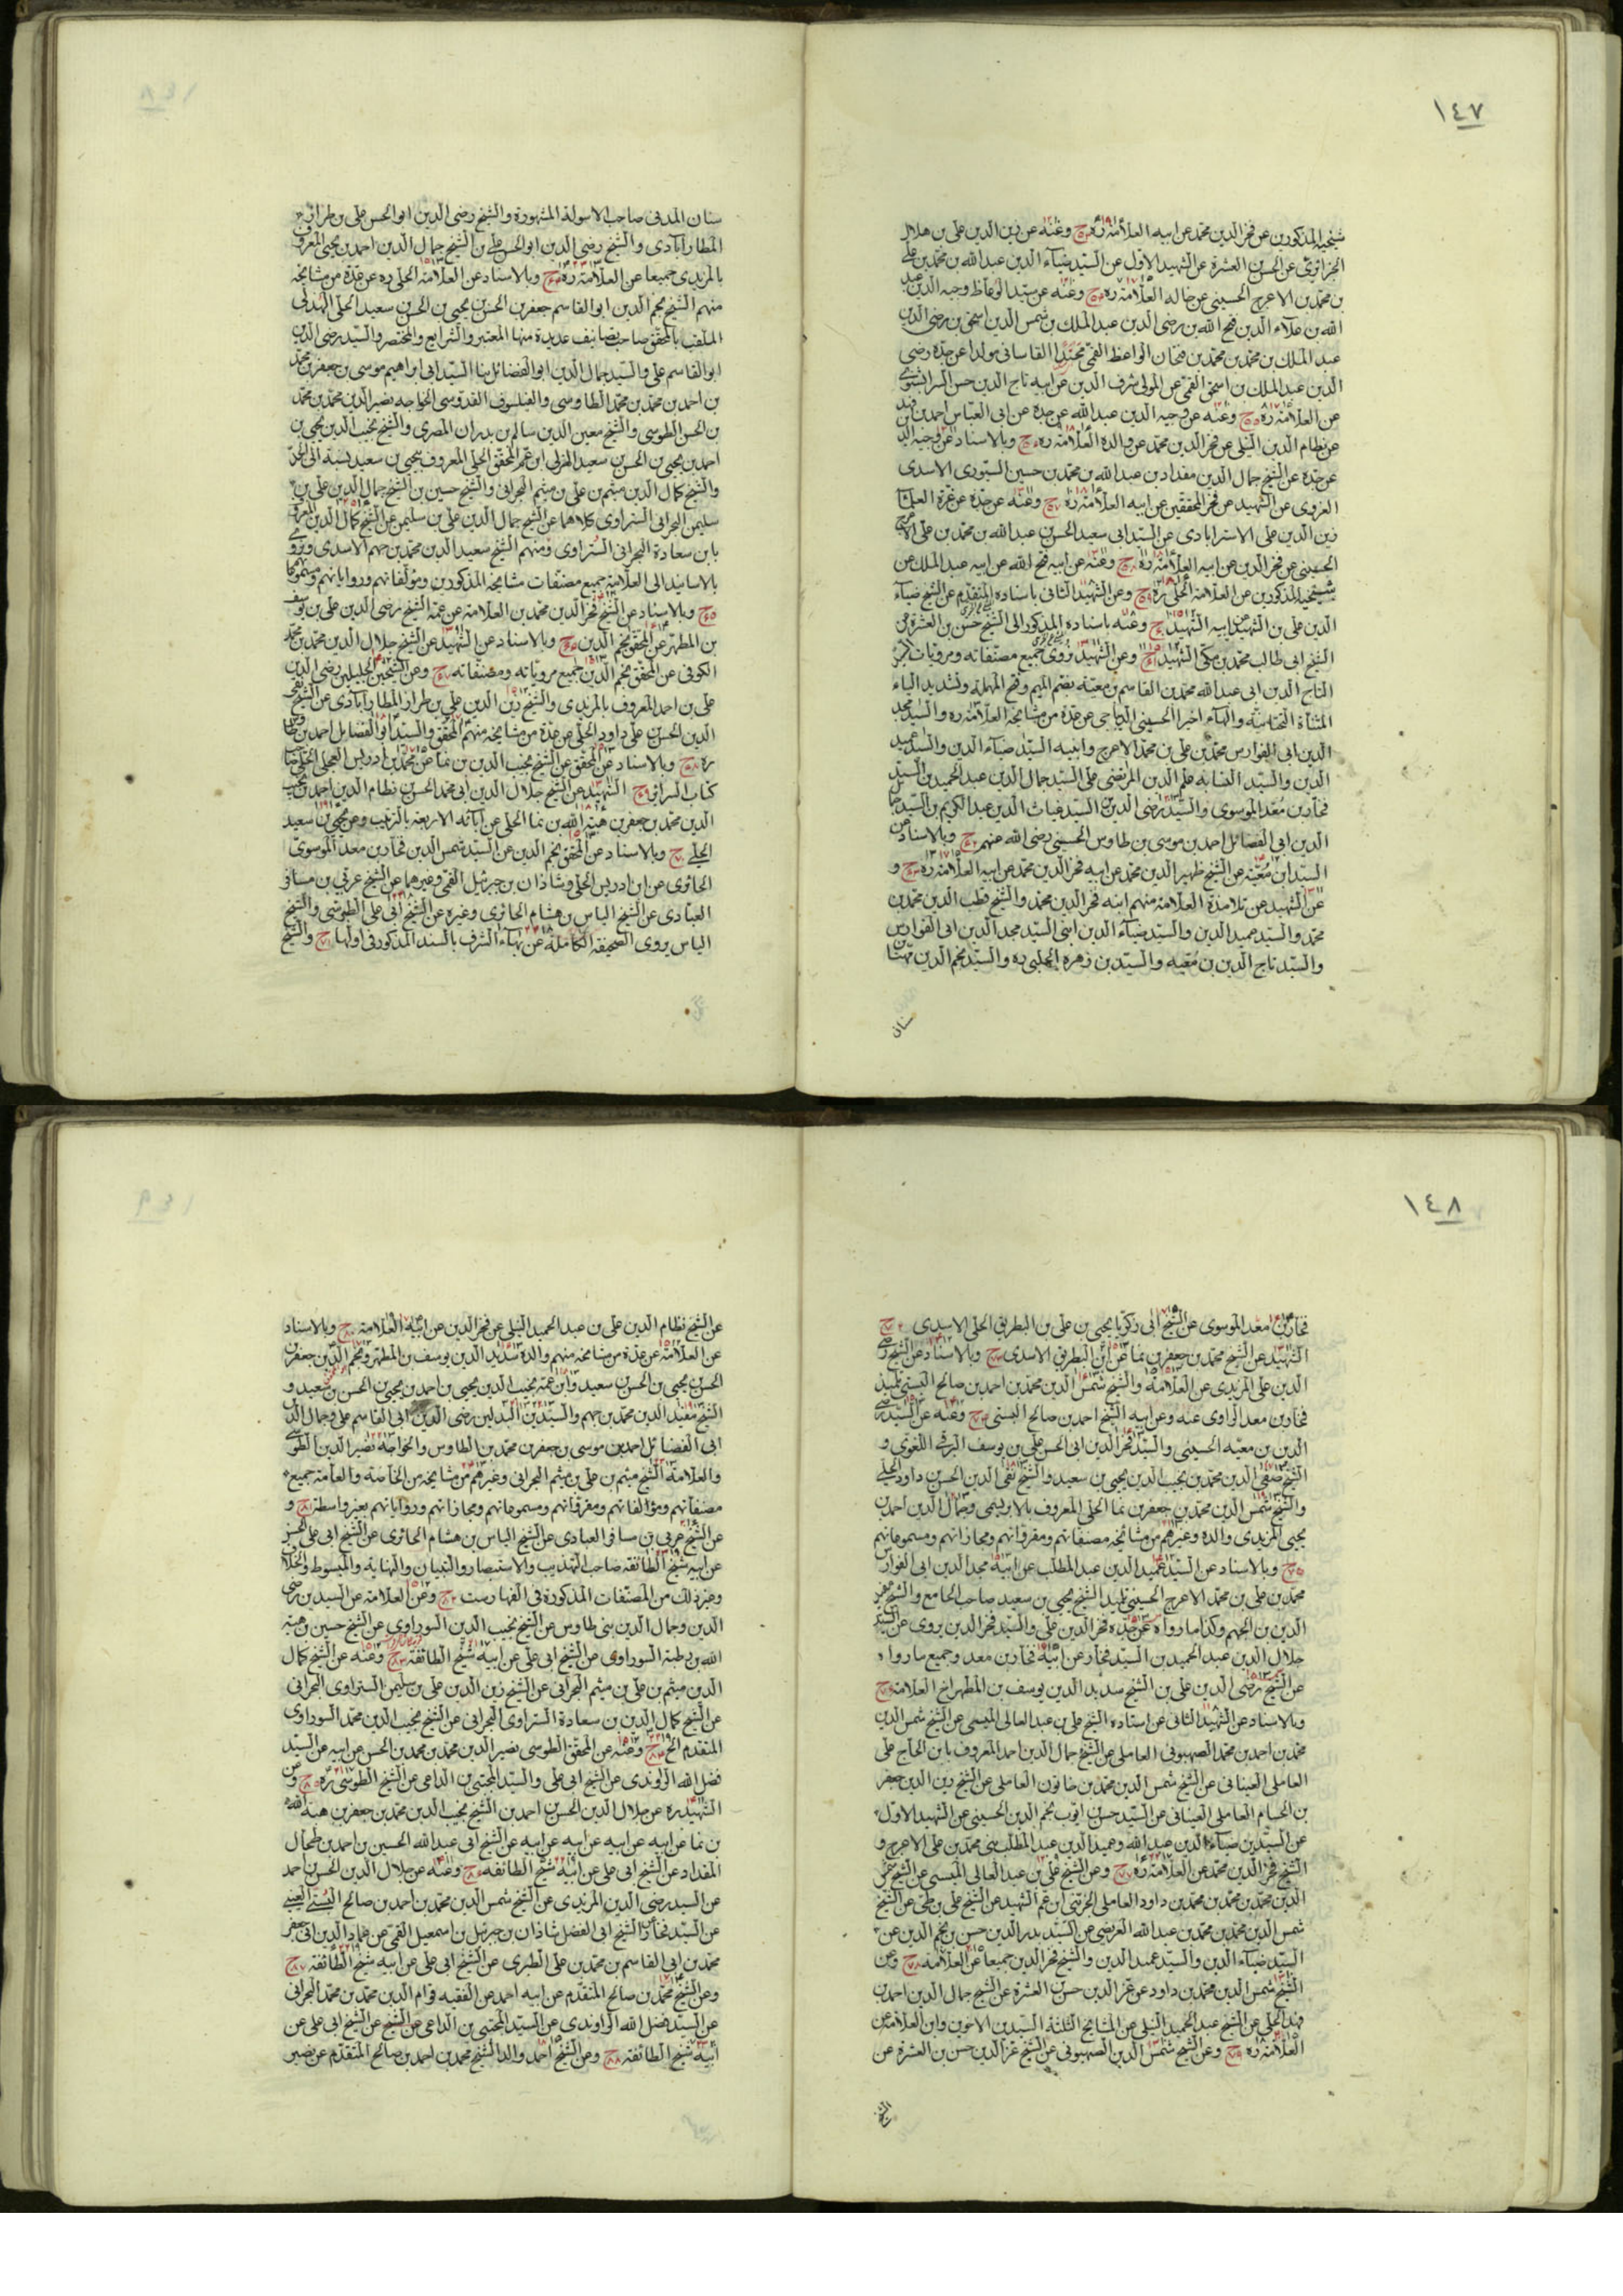 ١٤٧
شيخيه المذكورين عن فخر الدين محمد عن ابيه العلامة ره ح وعنه عن زين الدين علي بن هلال
الجزائري عن الحسن بن العشرة عن الشهيد الاول عن السيد ضياء الدين عبد الله بن محمد بن علي
بن محمد بن الاعرج الحسيني عن خاله العلامة ره ح وعنه عن سيد الوعاظ وجيه الدين عبد
الله بن علاء الدين فتح الله بن رضي الدين عبد الملك بن شمس الدين اسحق بن رضي الدين
عبد الملك بن محمد بن محمد بن فتحان الواعظ القمي القاساني مولدا عن جده رضي
الدين عبد الملك بن اسحق القمي عن المولى شرف الدين عن ابيه تاج الدين حسن السرابشنوي
عن العلامة ره ح وعنه عن وجيه الدين عبد الله عن جده عن ابي العباس احمد بن فهد
عن نظام الدين النيلي عن فخر الدين محمد عن والده العلامة ره ح وبالاسناد عن وجيه الدين
عن جده عن الشيخ جمال الدين مقداد بن عبد الله بن محمد بن حسين السيوري الاسدي
الغروي عن الشهيد عن فخر المحققين عن ابيه العلامة ره ح وعنه عن جده عن غرة العلماء
زين الدين علي الاسترابادي عن السيد ابي سعيد الحسن بن عبد الله بن محمد بن علي الاعرج
الحسيني عن فخر الدين عن ابيه العلامة ره ح وعنه عن ابيه فتح الله عن ابيه عبد الملك عن
شيخيه المذكورين عن العلامة الحلي ره ح وعن الشهيد الثاني باسناده المتقدم عن الشيخ ضياء
الدين علي بن الشهيد عن ابيه الشهيد ح وعنه باسناده المذكور الى الشيخ حسن بن العشرة عن
الشيخ ابي طالب محمد بن مكي الشهيد ح وعن الشهيد نروي جميع مصنفاته ومرويات
التاج الدين ابي عبد الله محمد بن القاسم بن معية بضم الميم وفتح المهملة وتشديد الياء
المثناة التحتانية والهاء اخيرا الحسيني الديباجي عن عدة من مشايخه العلامة ره والسيد مجد
الدين ابي الفوارس محمد بن علي بن محمد الاعرج وابنيه السيد ضياء الدين والسيد عميد
الدين والسيد النسابة علم الدين المرتضى علي السيد جمال الدين عبد الحميد بن السيد
فخار بن معد الموسوي والسيد رضي الدين بن السيد غياث الدين عبد الكريم بن السيد جمال
الدين ابي الفضائل احمد بن موسى بن طاوس الحسيني رضي الله عنهم ح وبالاسناد عن
السيد ابن معية عن الشيخ ظهير الدين محمد عن ابيه فخر الدين محمد عن ابيه العلامة ره ح و
عن الشهيد عن تلامذة العلامة منهم ابنه فخر الدين محمد والشيخ قطب الدين محمد بن
محمد والسيد عميد الدين والسيد ضياء الدين ابني السيد مجد الدين ابي الفوارس
والسيد تاج الدين بن معية والسيد بن زهرة الحلبي ره والسيد نجم الدين مهنا بن
سنان
سنان المدني صاحب الاسولة المشهورة والشيخ رضي الدين ابو الحسن علي بن طراز
المطارآبادي والشيخ رضي الدين ابو الحسن علي بن الشيخ جمال الدين احمد بن يحيى المعروف
بالمزيدي جميعا عن العلامة ره ح وبالاسناد عن العلامة الحلي ره عن عدة من مشايخه
منهم الشيخ نجم الدين ابو القاسم جعفر بن الحسن بن يحيى بن الحسن بن سعيد الحلي الهذلي
الملقب بالمحقق صاحب تصانيف عديدة منها المعتبر والشرايع والمختصر والسيد رضي الدين
ابو القاسم علي والسيد جمال الدين ابو الفضائل ابنا السيد ابي ابراهيم موسى بن جعفر بن محمد
بن احمد بن محمد بن محمد الطاوسي والفيلسوف القدوسي الخواجه نصير الدين محمد بن محمد
بن الحسن الطوسي والشيخ معين الدين سالم بن بدران المصري والشيخ نجيب الدين يحيى بن
احمد بن يحيى بن الحسن بن سعيد الهذلي ابن عم المحقق الحلي المعروف بيحيى بن سعيد نسبة الى الجد
والشيخ كمال الدين ميثم بن علي بن ميثم البحراني والشيخ حسين بن الشيخ جمال الدين علي بن
سليمن البحراني الستراوي كلاهما عن الشيخ جمال الدين علي بن سليمن عن الشيخ كمال الدين المعروف
بابن سعادة البحراني الستراوي ومنهم الشيخ سعيد الدين محمد بن جهم الاسدي ونروي
بالاسانيد الى العلامة جميع مصنفات مشايخه المذكورين ومؤلفاتهم ورواياتهم ومسموعاتهم
ح وبالاسناد عن الشيخ فخر الدين محمد بن العلامة عن عمه الشيخ رضي الدين علي بن يوسف
بن المطهر عن المحقق نجم الدين ح وبالاسناد عن الشهيد عن الشيخ جلال الدين محمد بن محمد
الكوفي عن المحقق نجم الدين جميع مروياته ومصنفاته ح وعن الشيخين الجليلين رضي الدين
علي بن احمد المعروف بالمزيدي والشيخ زين الدين علي بن طراز المطارآبادي عن الشيخ تقي
الدين الحسن بن علي داود الحلي عن عدة من مشايخه منهم المحقق والسيد ابو الفضايل احمد بن طاوس
ره ح وبالاسناد عن المحقق عن الشيخ نجيب الدين بن نما عن محمد بن ادريس العجلي الحلي صاحب
كتاب السرائر ح الشهيد عن الشيخ جلال الدين ابي محمد الحسن بن نظام الدين احمد بن نجيب
الدين محمد بن جعفر بن هبة الله بن نما الحلي عن آبائه الاربعة بالترتيب وعن يحيى بن سعيد
الحلي ح وبالاسناد عن المحقق نجم الدين عن السيد شمس الدين فخار بن معد الموسوي
الحائري عن ابن ادريس الحلي وشاذان بن جبرئيل القمي وغيرهما عن الشيخ عربي بن مسافر
العبادي عن الشيخ الياس بن هشام الحائري وغيره عن الشيخ ابي علي الطوسي والشيخ
الياس يروي الصحيفة الكاملة عن بهاء الشرف بالسند المذكور في اولها ح والشيخ
١٤٨
فخار بن معد الموسوي عن الشيخ ابي زكريا يحيى بن علي بن البطريق الحلي الاسدي ح
الشهيد عن الشيخ محمد بن جعفر بن نما عن ابن البطريق الاسدي ح وبالاسناد عن الشيخ رضي
الدين علي المزيدي عن العلامة والشيخ شمس الدين محمد بن احمد بن صالح القسيني تلميذ
فخار بن معد الراوي عنه وعن ابيه الشيخ احمد بن صالح القسيني ح وعنه عن السيد رضي
الدين بن معية الحسيني والسيد فخر الدين ابي الحسن علي بن يوسف البوقي اللغوي و
الشيخ صفي الدين محمد بن نجيب الدين يحيى بن سعيد والشيخ تقي الدين الحسن بن داود الحلي
والشيخ شمس الدين محمد بن جعفر بن نما الحلي المعروف بالابريسمي وجمال الدين احمد بن
يحيى المزيدي والده وغيرهم من مشايخه مصنفاتهم ومقرواتهم ومجازاتهم ومسموعاتهم
ح وبالاسناد عن السيد عميد الدين عبد المطلب عن ابيه مجد الدين ابي الفوارس
محمد بن علي بن محمد الاعرج الحسيني تلميذ الشيخ يحيى بن سعيد صاحب الجامع والشيخ مفيد
الدين بن الجهم وكذا ما رواه عن جده فخر الدين علي والسيد فخر الدين يروي عن السيد
جلال الدين عبد الحميد بن السيد فخار عن ابيه فخار بن معد وجميع ما رواه
عن الشيخ رضي الدين علي بن الشيخ سديد الدين يوسف بن المطهر اخ العلامة ح
وبالاسناد عن الشهيد الثاني عن استاده الشيخ علي بن عبد العالي الميسي عن الشيخ شمس الدين
محمد بن احمد بن محمد الصهيوني العاملي عن الشيخ جمال الدين احمد المعروف بابن الحاج علي
العاملي العيناثي عن الشيخ شمس الدين محمد بن خاتون العاملي عن الشيخ زين الدين جعفر
بن الحسام العاملي العيناثي عن السيد حسن بن ايوب نجم الدين الحسيني عن الشهيد الاول
عن السيدين ضياء الدين عبد الله وعميد الدين عبد المطلب بني محمد بن علي الاعرج و
الشيخ فخر الدين محمد عن العلامة ره ح وعن الشيخ علي بن عبد العالي الميسي عن الشيخ شمس
الدين محمد بن محمد بن محمد بن داود العاملي الجزيني ابن عم الشهيد عن الشيخ علي بن طي عن الشيخ
شمس الدين محمد بن محمد بن عبد الله العريضي عن السيد بدر الدين حسن بن نجم الدين عن
السيد ضياء الدين والسيد عميد الدين والشيخ فخر الدين جميعا عن العلامة ح وعن
الشيخ شمس الدين محمد بن داود عن عز الدين حسن بن العشرة عن الشيخ جمال الدين احمد بن
فهد الحلي عن الشيخ عبد الحميد النيلي عن المشايخ الثلثة السيدين الاخوين وابن العلامة عن
العلامة ره ح وعن الشيخ شمس الدين الصهيوني عن الشيخ عز الدين حسن بن العشرة عن
الشيخ
عن الشيخ نظام الدين علي بن عبد الحميد النيلي عن فخر الدين عن ابيه العلامة ح وبالاسناد
عن العلامة عن عدة من مشايخه منهم والده سديد الدين يوسف بن المطهر ونجم الدين جعفر بن
الحسن بن يحيى بن الحسن بن سعيد وابن عمه نجيب الدين يحيى بن احمد بن يحيى بن الحسن بن سعيد و
الشيخ مفيد الدين محمد بن جهم والسيدين البدلين رضي الدين ابي القاسم علي وجمال الدين
ابي الفضائل احمد بن موسى بن جعفر بن محمد بن الطاوس والخواجه نصير الدين الطوسي
والعلامة الشيخ ميثم بن علي بن ميثم البحراني وغيرهم من مشايخه من الخاصة والعامة جميع
مصنفاتهم ومؤالفاتهم ومقرواتهم ومسموعاتهم ومجازاتهم ورواياتهم بغير واسطة ح و
عن الشيخ عربي بن مسافر العبادي عن الشيخ الياس بن هشام الحائري عن الشيخ ابي علي الحسن
عن ابيه شيخ الطائفة صاحب التهذيب والاستبصار والتبيان والنهاية والمبسوط والخلاف
وغير ذلك من المصنفات المذكورة في الفهارست ح وعن العلامة عن السيدين رضي
الدين وجمال الدين بني طاوس عن الشيخ نجيب الدين السوراوي عن الشيخ حسين بن هبة
الله بن رطبة السوراوي عن الشيخ ابي علي عن ابيه شيخ الطائفة ح وعنه عن الشيخ كمال
الدين ميثم بن علي بن ميثم البحراني عن الشيخ زين الدين علي بن سليمن الستراوي البحراني
عن الشيخ كمال الدين بن سعادة الستراوي البحراني عن الشيخ نجيب الدين محمد السوراوي
المتقدم الخ ح وعنه عن المحقق الطوسي نصير الدين محمد بن محمد بن الحسن عن ابيه عن السيد
فضل الله الراوندي عن الشيخ ابي علي والسيد المجتبى بن الداعي عن الشيخ الطوسي ره ح وعن
الشهيد ره عن جلال الدين الحسن بن احمد بن الشيخ نجيب الدين محمد بن جعفر بن هبة الله
بن نما عن ابيه عن ابيه عن ابيه عن ابيه عن الشيخ ابي عبد الله الحسين بن احمد بن طحال
المقدادي عن الشيخ ابي علي عن ابيه شيخ الطائفة ح وعنه عن جلال الدين الحسن بن احمد
عن السيد رضي الدين المزيدي عن الشيخ شمس الدين محمد بن احمد بن صالح القسيني
عن السيد فخار عن الشيخ ابي الفضل شاذان بن جبرئيل بن اسمعيل القمي عن عماد الدين ابي جعفر
محمد بن ابي القاسم بن محمد بن علي الطبري عن الشيخ ابي علي عن ابيه شيخ الطائفة ح
وعن الشيخ محمد بن صالح المتقدم عن ابيه احمد عن الفقيه قوام الدين محمد بن محمد البحراني
عن السيد فضل الله الراوندي عن السيد المجتبى بن الداعي عن الشيخ عن الشيخ ابي علي عن
ابيه شيخ الطائفة ح وعن الشيخ احمد والد الشيخ محمد بن احمد بن صالح المتقدم عن نصير